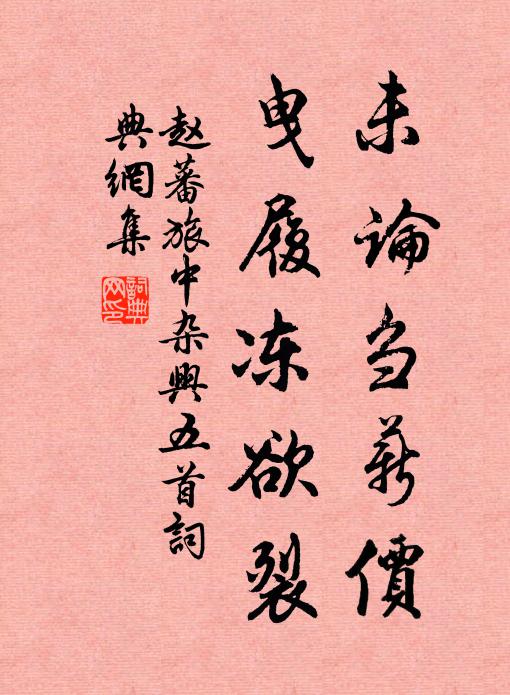 未论刍薪價
曳履冻欲裂
赵蕃旅中杂興五首詞
典網集
詞典
网印